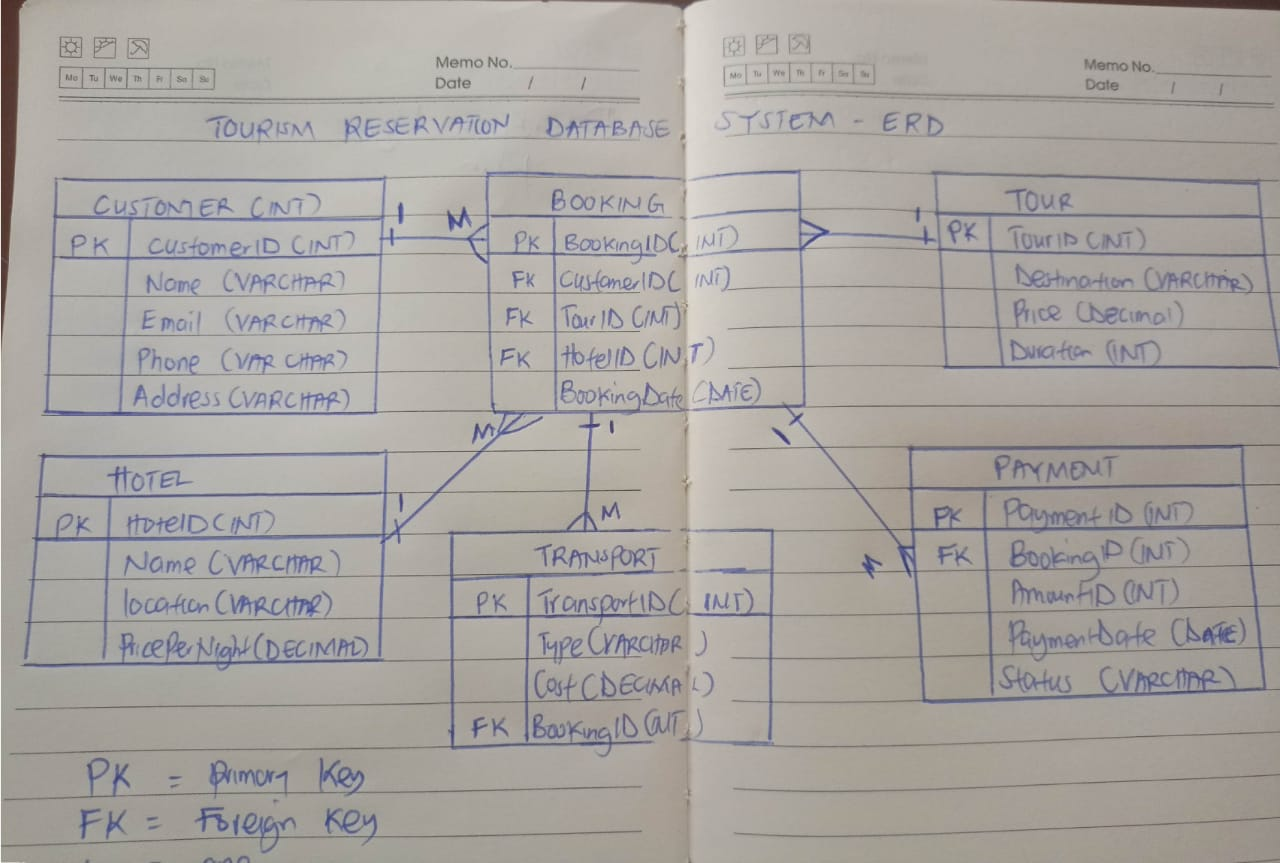 Memo No.
Mo Tu We Th Fr Sa Su
Date / /
Memo No.
Mo Tu We Th Fr Sa Su
Date / /
TOURISM RESERVATION DATABASE SYSTEM - ERD
CUSTOMER (INT)
PK CustomerID (INT)
Name (VARCHAR)
Email (VARCHAR)
Phone (VARCHAR)
Address (VARCHAR)
1 M
BOOKING
PK BookingID (INT)
FK CustomerID (INT)
FK TourID (INT)
FK HotelID (INT)
BookingDate (DATE)
1
TOUR
PK TourID (INT)
Destination (VARCHAR)
Price (Decimal)
Duration (INT)
M 1
1
HOTEL
PK HotelID (INT)
Name (VARCHAR)
location (VARCHAR)
PricePerNight (DECIMAL)
1
M
TRANSPORT
PK TransportID (INT)
Type (VARCHAR)
Cost (DECIMAL)
FK BookingID (INT)
M
PAYMENT
PK Payment ID (INT)
FK BookingID (INT)
AmountID (INT)
PaymentDate (DATE)
Status (VARCHAR)
PK = Primary Key
FK = Foreign Key